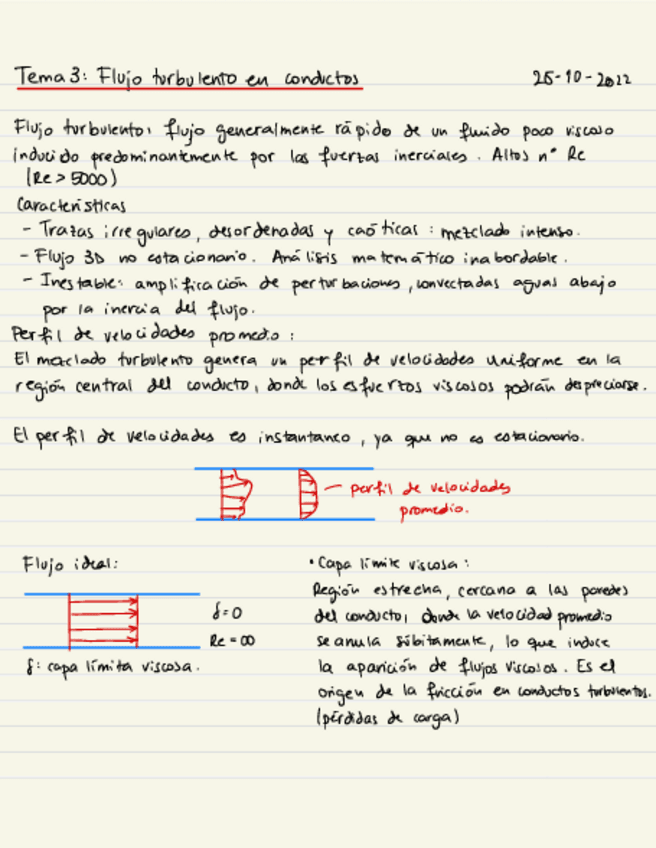 Tema 3: Flujo turbulento en conductos
25-10-2022
Flujo turbulento: flujo generalmente rápido de un fluido poco viscoso
inducido predominantemente por las fuerzas inerciales. Altos nº Re
(Re > 5000)
Características
- Trazas irregulares, desordenadas y caóticas: mezclado intenso.
- Flujo 3D no estacionario. Análisis matemático inabordable.
- Inestable: amplificación de perturbaciones, convectadas aguas abajo
por la inercia del flujo.
Perfil de velocidades promedio:
El mezclado turbulento genera un perfil de velocidades uniforme en la
región central del conducto, donde los esfuerzos viscosos podrán despreciarse.
El perfil de velocidades es instantaneo, ya que no es estacionario.
perfil de velocidades
promedio.
Flujo ideal:
δ=0
Re = ∞
δ: capa límita viscosa.
• Capa límite viscosa:
Región estrecha, cercana a las paredes
del conducto, donde la velocidad promedio
se anula súbitamente, lo que induce
la aparición de flujos viscosos. Es el
origen de la fricción en conductos turbulentos.
(pérdidas de carga)